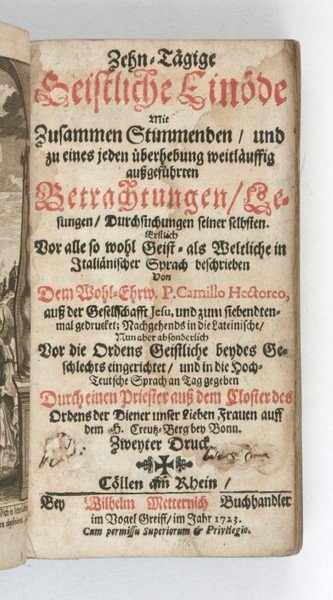 Zehn-Tägige
Geistliche Einöde
Mit
Zusammen Stimmenden / und
zu eines jeden überhebung weitläuffig
außgeführten
Betrachtungen / Le-
sungen / Durchsuchungen seiner selbsten.
Erstlich
Vor alle so wohl Geist- als Weltliche in
Italiänischer Sprach beschrieben
Von
Dem Wohl-Ehrw. P. Camillo Hectoreo,
auß der Gesellschafft Jesu, und zum siebendten-
mal gedrucket; Nachgehends in die Lateinische /
Nun aber absonderlich
Vor die Ordens Geistliche beydes Ge-
schlechts eingerichtet / und in die Hoch-
Teutsche Sprach an Tag gegeben
Durch einen Priester auß dem Closter des
Ordens der Diener unser Lieben Frauen auff
dem H. Creutz-Berg bey Bonn.
Zweyter Druck
Cöllen am Rhein /
Bey Wilhelm Metternich Buchhandler
im Vogel Greiff / im Jahr 1723.
Cum permissu Superiorum & Privilegio.